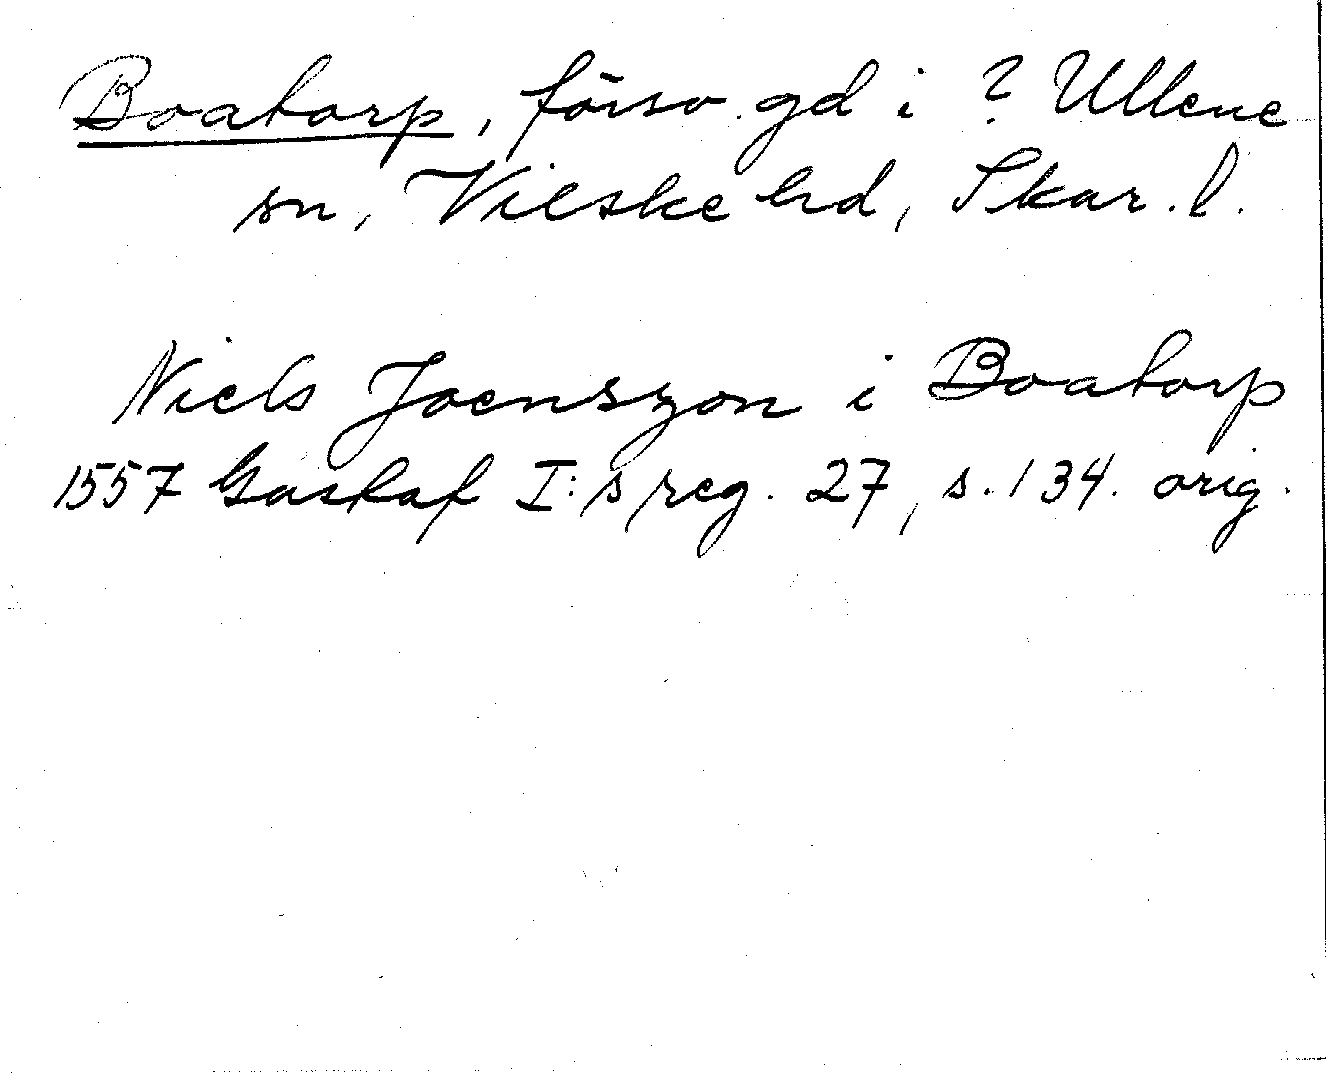 Boatorp, försv. gd i ? Ullene
sn, Vilske hd, Skar. l.
Niels Joenszon i Boatorp
1557 Gustaf I:s reg. 27, s. 134. orig.